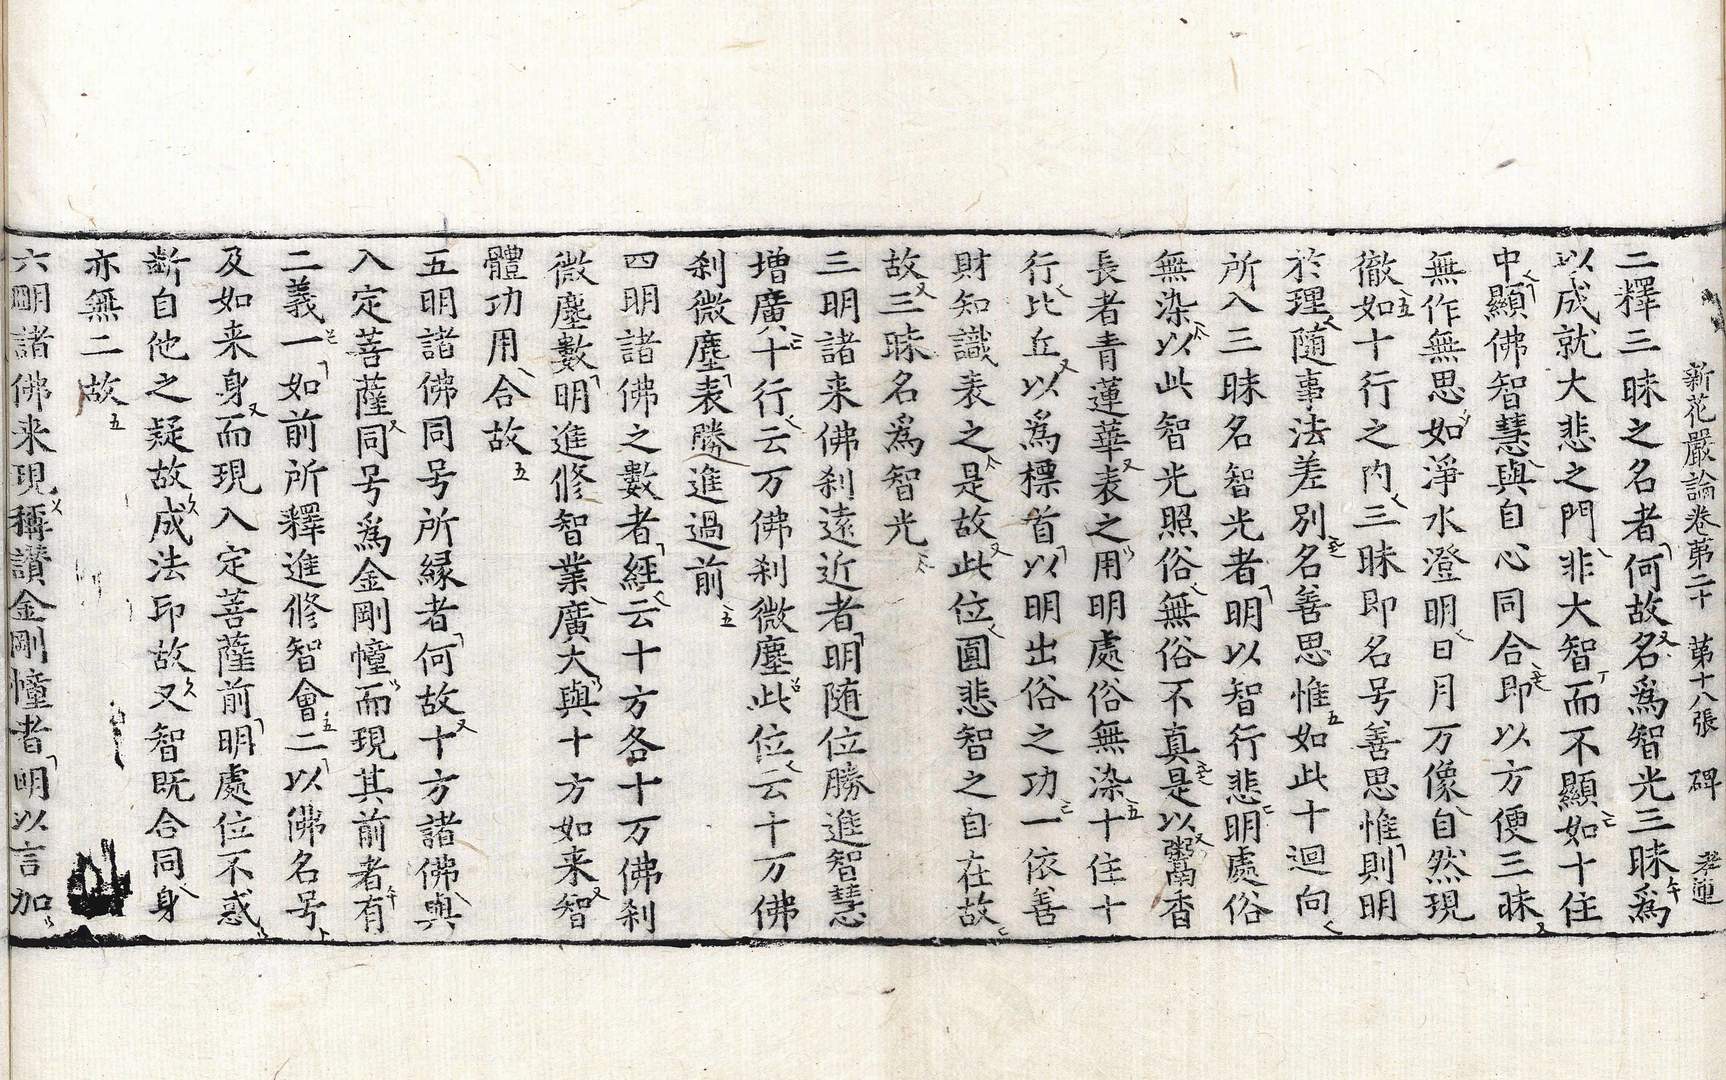 新花嚴論卷第二十 第十八張 碑 孝通
二釋三昧之名者何故名爲智光三昧爲
以成就大悲之門非大智而不顯如十住
中顯佛智慧與自心同合即以方便三昧
無作無思如淨水澄明日月万像自然現
徹如十行之內三昧即名号善思惟則明
於理隨事法差別名善思惟如此十迴向
所入三昧名智光者明以智行悲明處俗
無染以此智光照俗無俗不真是以鬻香
長者青蓮華表之用明處俗無染十住十
行比丘以爲標首以明出俗之功一依善
財知識表之是故此位圓悲智之自在故
故三昧名爲智光
三明諸来佛刹遠近者明随位勝進智慧
增廣十行云万佛刹微塵此位云十万佛
刹微塵表勝進過前
四明諸佛之數者經云十方各十万佛刹
微塵數明進修智業廣大與十方如来智
體功用合故
五明諸佛同号所縁者何故十方諸佛與
入定菩薩同号爲金剛幢而現其前者有
二義一如前所釋進修智會二以佛名号
及如来身而現入定菩薩前明處位不惑
斷自他之疑故成法印故又智既合同身
亦無二故
六明諸佛来現稱讃金剛幢者明以言加